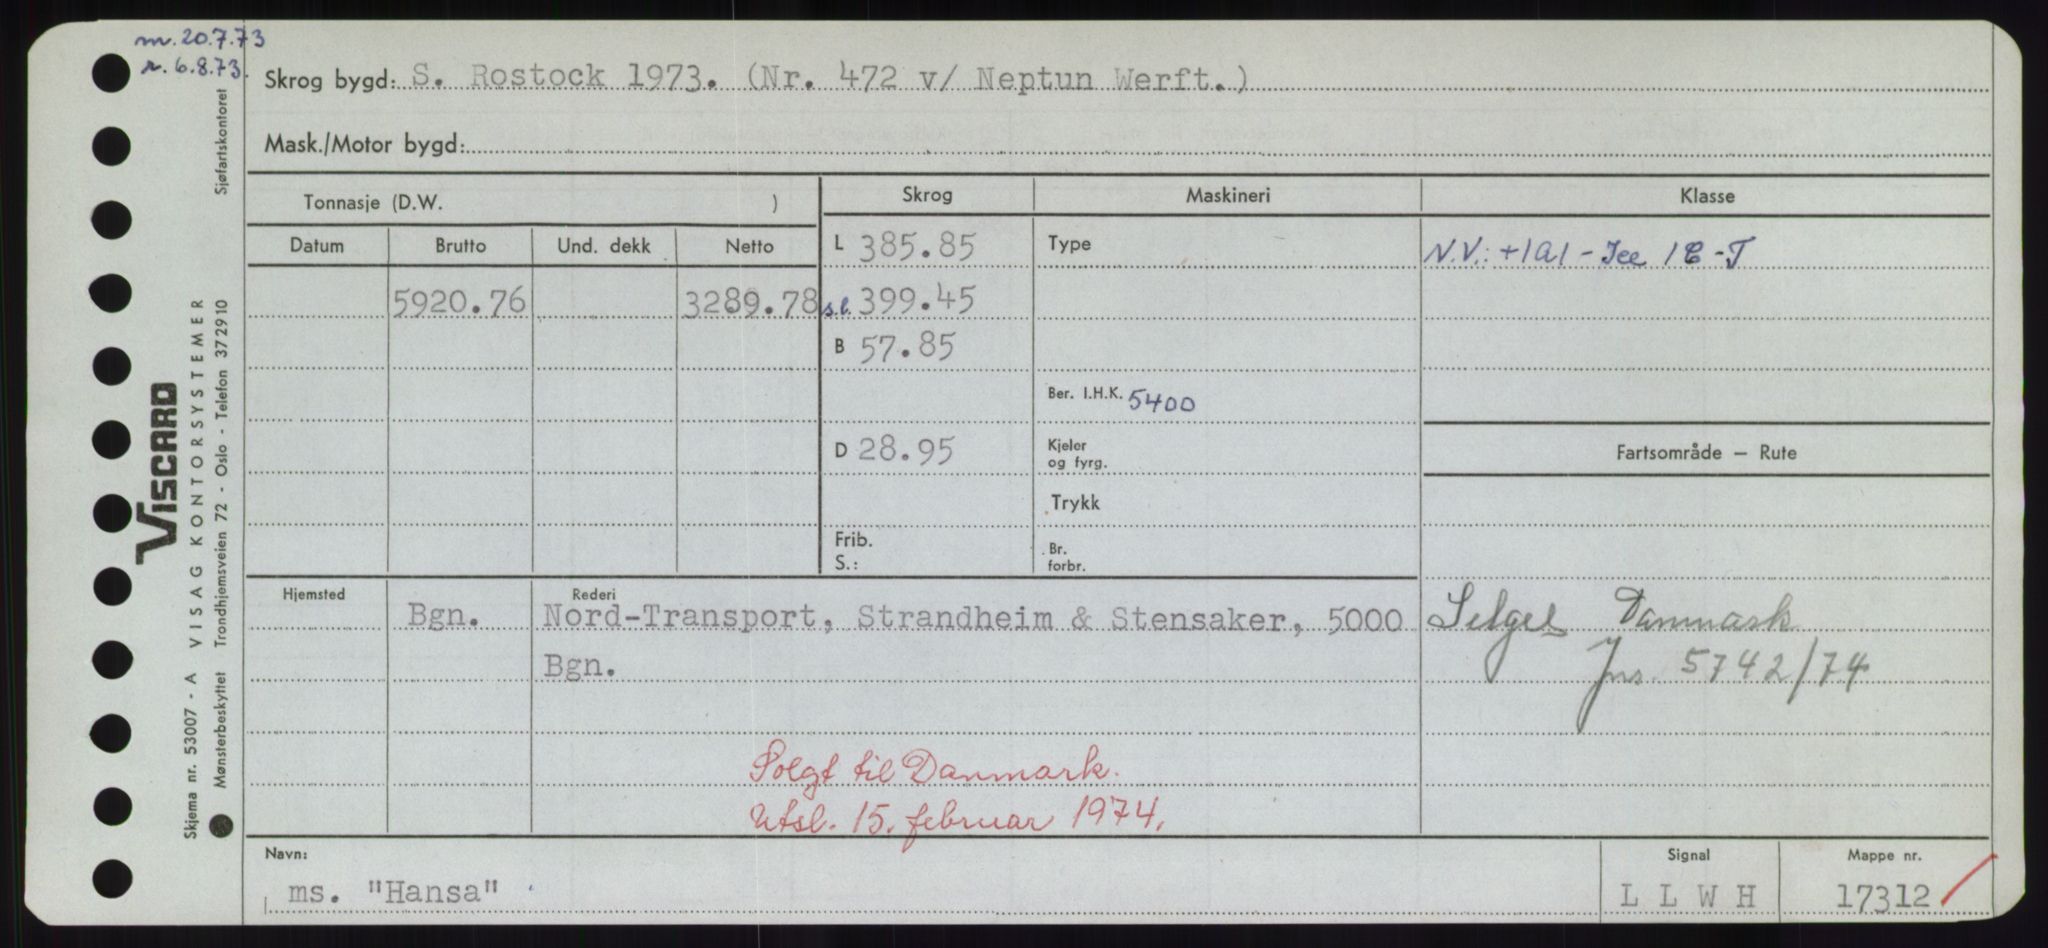 m. 20.7.73
r. 6.8.73.
Skrog bygd: S. Rostock 1973. (Nr. 472 v/ Neptun Werft.)
Mask./Motor bygd:
Tonnasje (D.W. )
Skrog
Maskineri
Klasse
Datum Brutto Und. dekk Netto
L 385.85
Type
N.V.: +1A1 - Ice 1C - T
5920.76 3289.78
s.l. 399.45
B 57.85
Ber. I.H.K. 5400
D 28.95
Kjeler
og fyrg.
Fartsområde – Rute
Trykk
Frib.
S.:
Br.
forbr.
Hjemsted
Rederi
Bgn. Nord-Transport, Strandheim & Stensaker, 5000
Bgn.
Selges Danmark
Jnr. 5742/74
Solgt til Danmark.
Utsl. 15. februar 1974.
Navn:
ms. "Hansa"
Signal
L L W H
Mappe nr.
17312
VISCARD
VISAG KONTORSYSTEMER
Skjema nr. 53007 - A
Mønsterbeskyttet Trondhjemsveien 72 - Oslo - Telefon 372910
Sjøfartskontoret